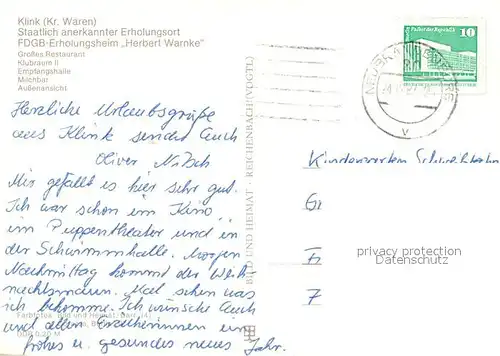 Klink (Kr. Waren)
Staatlich anerkannter Erholungsort
FDGB-Erholungsheim „Herbert Warnke"
Großes Restaurant
Klubraum II
Empfangshalle
Milchbar
Außenansicht
Palast der Republik
10
DDR
Herzliche Urlaubsgrüße
aus Klink sendet Euch
Oliver Nitsch
Mir gefällt es hier sehr gut.
Ich war schon im Kino,
im Puppentheater und in
der Schwimmhalle. Morgen
Nachmittag kommt der Weih-
nachtsmann. Mal sehen was
ich bekomme. Ich wünsche Euch
und allen Erzieherinnen ein
frohes u. gesundes neues Jahr.
BILD UND HEIMAT · REICHENBACH (VOGTL)
Kindergarten
Gr
Fr
7
privacy protection
Datenschutz